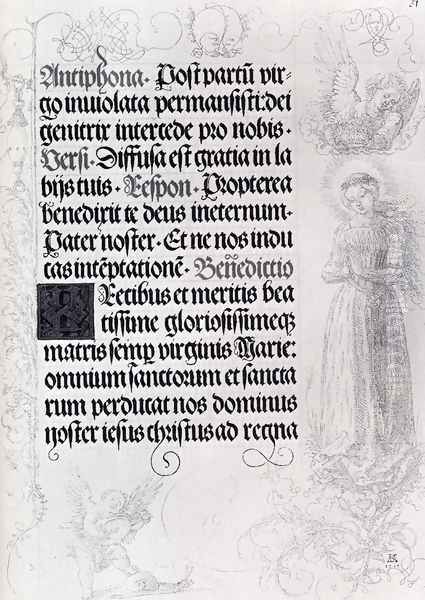 Antiphona. Post partū vir-
go inuiolata permansisti: dei
genitrix intercede pro nobis.
Versi. Diffusa est gratia in la
bijs tuis. Respon. Propterea
benedixit te deus ineternum.
Pater noster. Et ne nos indu
cas intēptationē. Benedictio
PRecibus et meritis bea
tissime gloriosissimeqꝫ
matris semꝑ virginis Marie:
omnium sanctorum et sancta
rum perducat nos dominus
noster iesus christus ad regna
AD